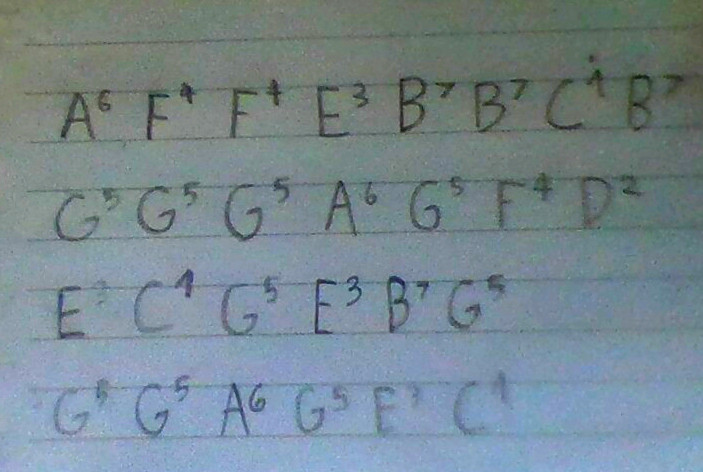 A⁶ F⁴ F⁴ E³ B⁷ B⁷ C¹̇ B⁷
G⁵ G⁵ G⁵ A⁶ G⁵ F⁴ D²
E³ C¹ G⁵ E³ B⁷ G⁵
G⁵ G⁵ A⁶ G⁵ E³ C¹